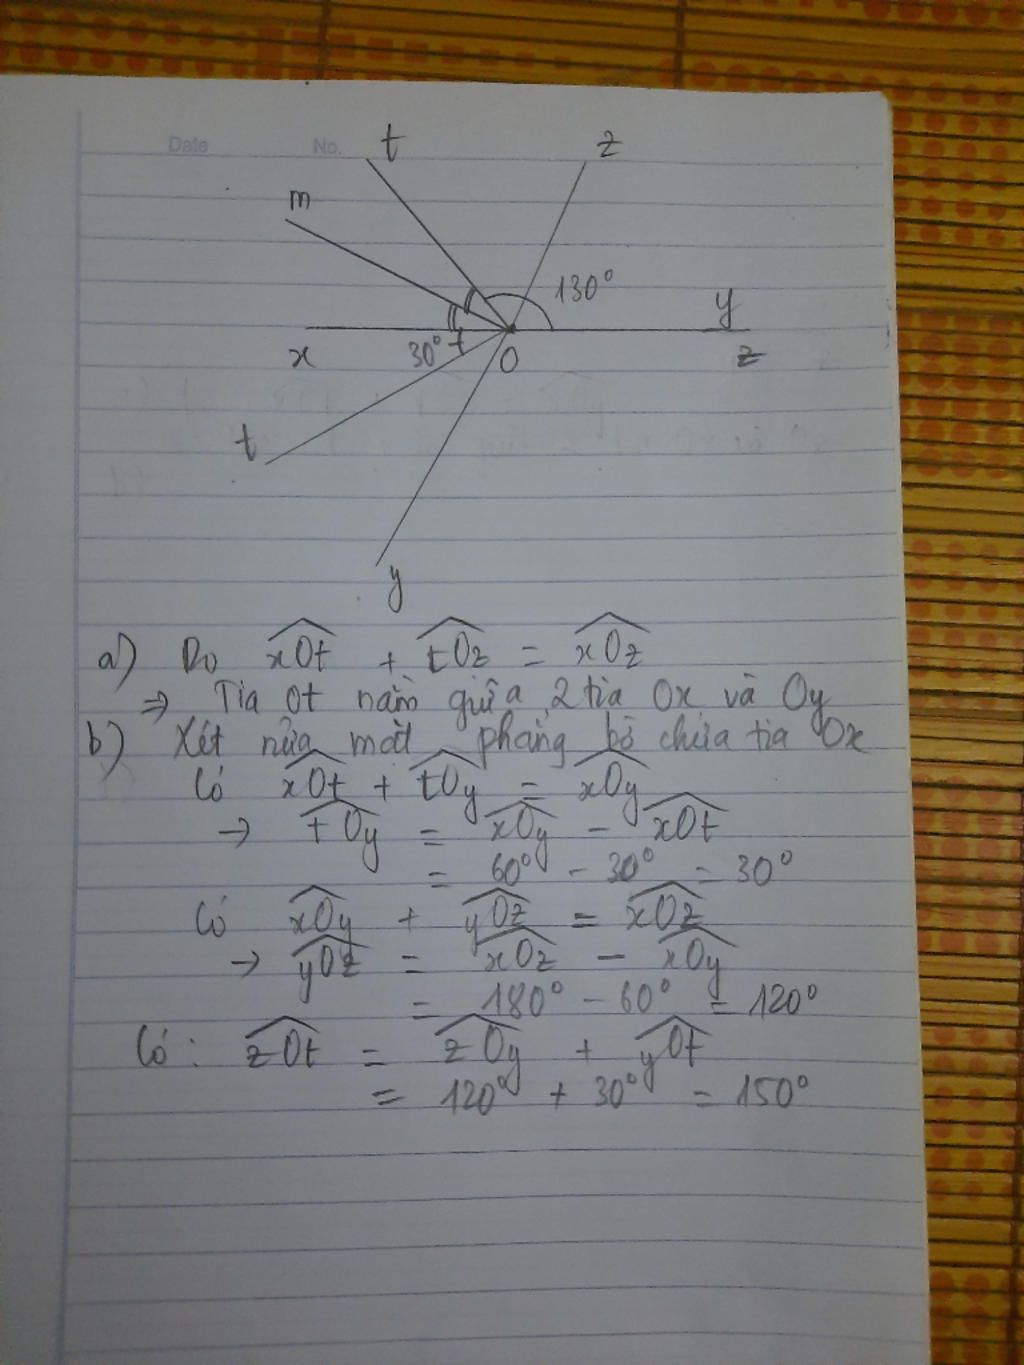 Date No.
t z
m
130°
y
x 30° O z
t
y
a) Do xOt + tOz = xOz
⇒ Tia Ot nằm giữa 2 tia Ox và Oy
b) Xét nửa mặt phẳng bờ chứa tia Ox
Có xOt + tOy = xOy
→ tOy = xOy - xOt
= 60° - 30° = 30°
Có xOy + yOz = xOz
→ yOz = xOz - xOy
= 180° - 60° = 120°
Có: zOt = zOy + yOt
= 120° + 30° = 150°